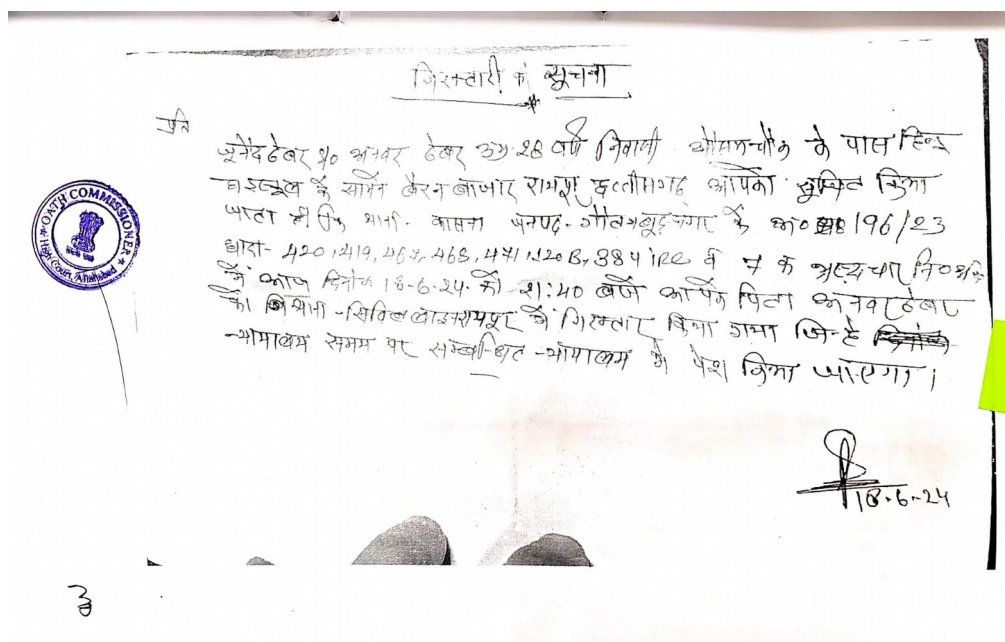 गिरफ्तारी की सूचना
प्रति
जूनैद ढेबर पु० अनवर ढेबर उम्र 28 वर्ष निवासी के पास हिन्द
हाईस्कूल के सामने बैरन बाजार रायपुर छत्तीसगढ़ आपको सूचित किया
जाता है कि थाना- कासना जनपद- गौतमबुद्धनगर के अ०सं० 196/23
धारा- 420, 419, 467, 468, 471, 120B, 384 IPC व भ्रष्टाचार नि० अधि०
में आज दिनांक 18-6-24 को 21:40 बजे आपके पिता अनवर ढेबर
को थाना - सिविल लाइन रायपुर से गिरफ्तार किया गया जिन्हें
न्यायालय समय पर सम्बन्धित न्यायालय में पेश किया जाएगा।
18-6-24
OATH COMMISSIONER
High Court, Allahabad